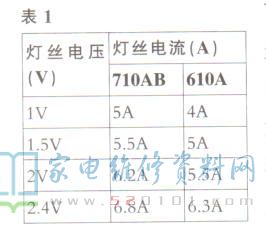 表 1
灯丝电压(V) 灯丝电流(A)
710AB 610A
1V 5A 4A
1.5V 5.5A 5A
2V 6.2A 5.5A
2.4V 6.8A 6.3A
家电维修资料网
www.520101.com